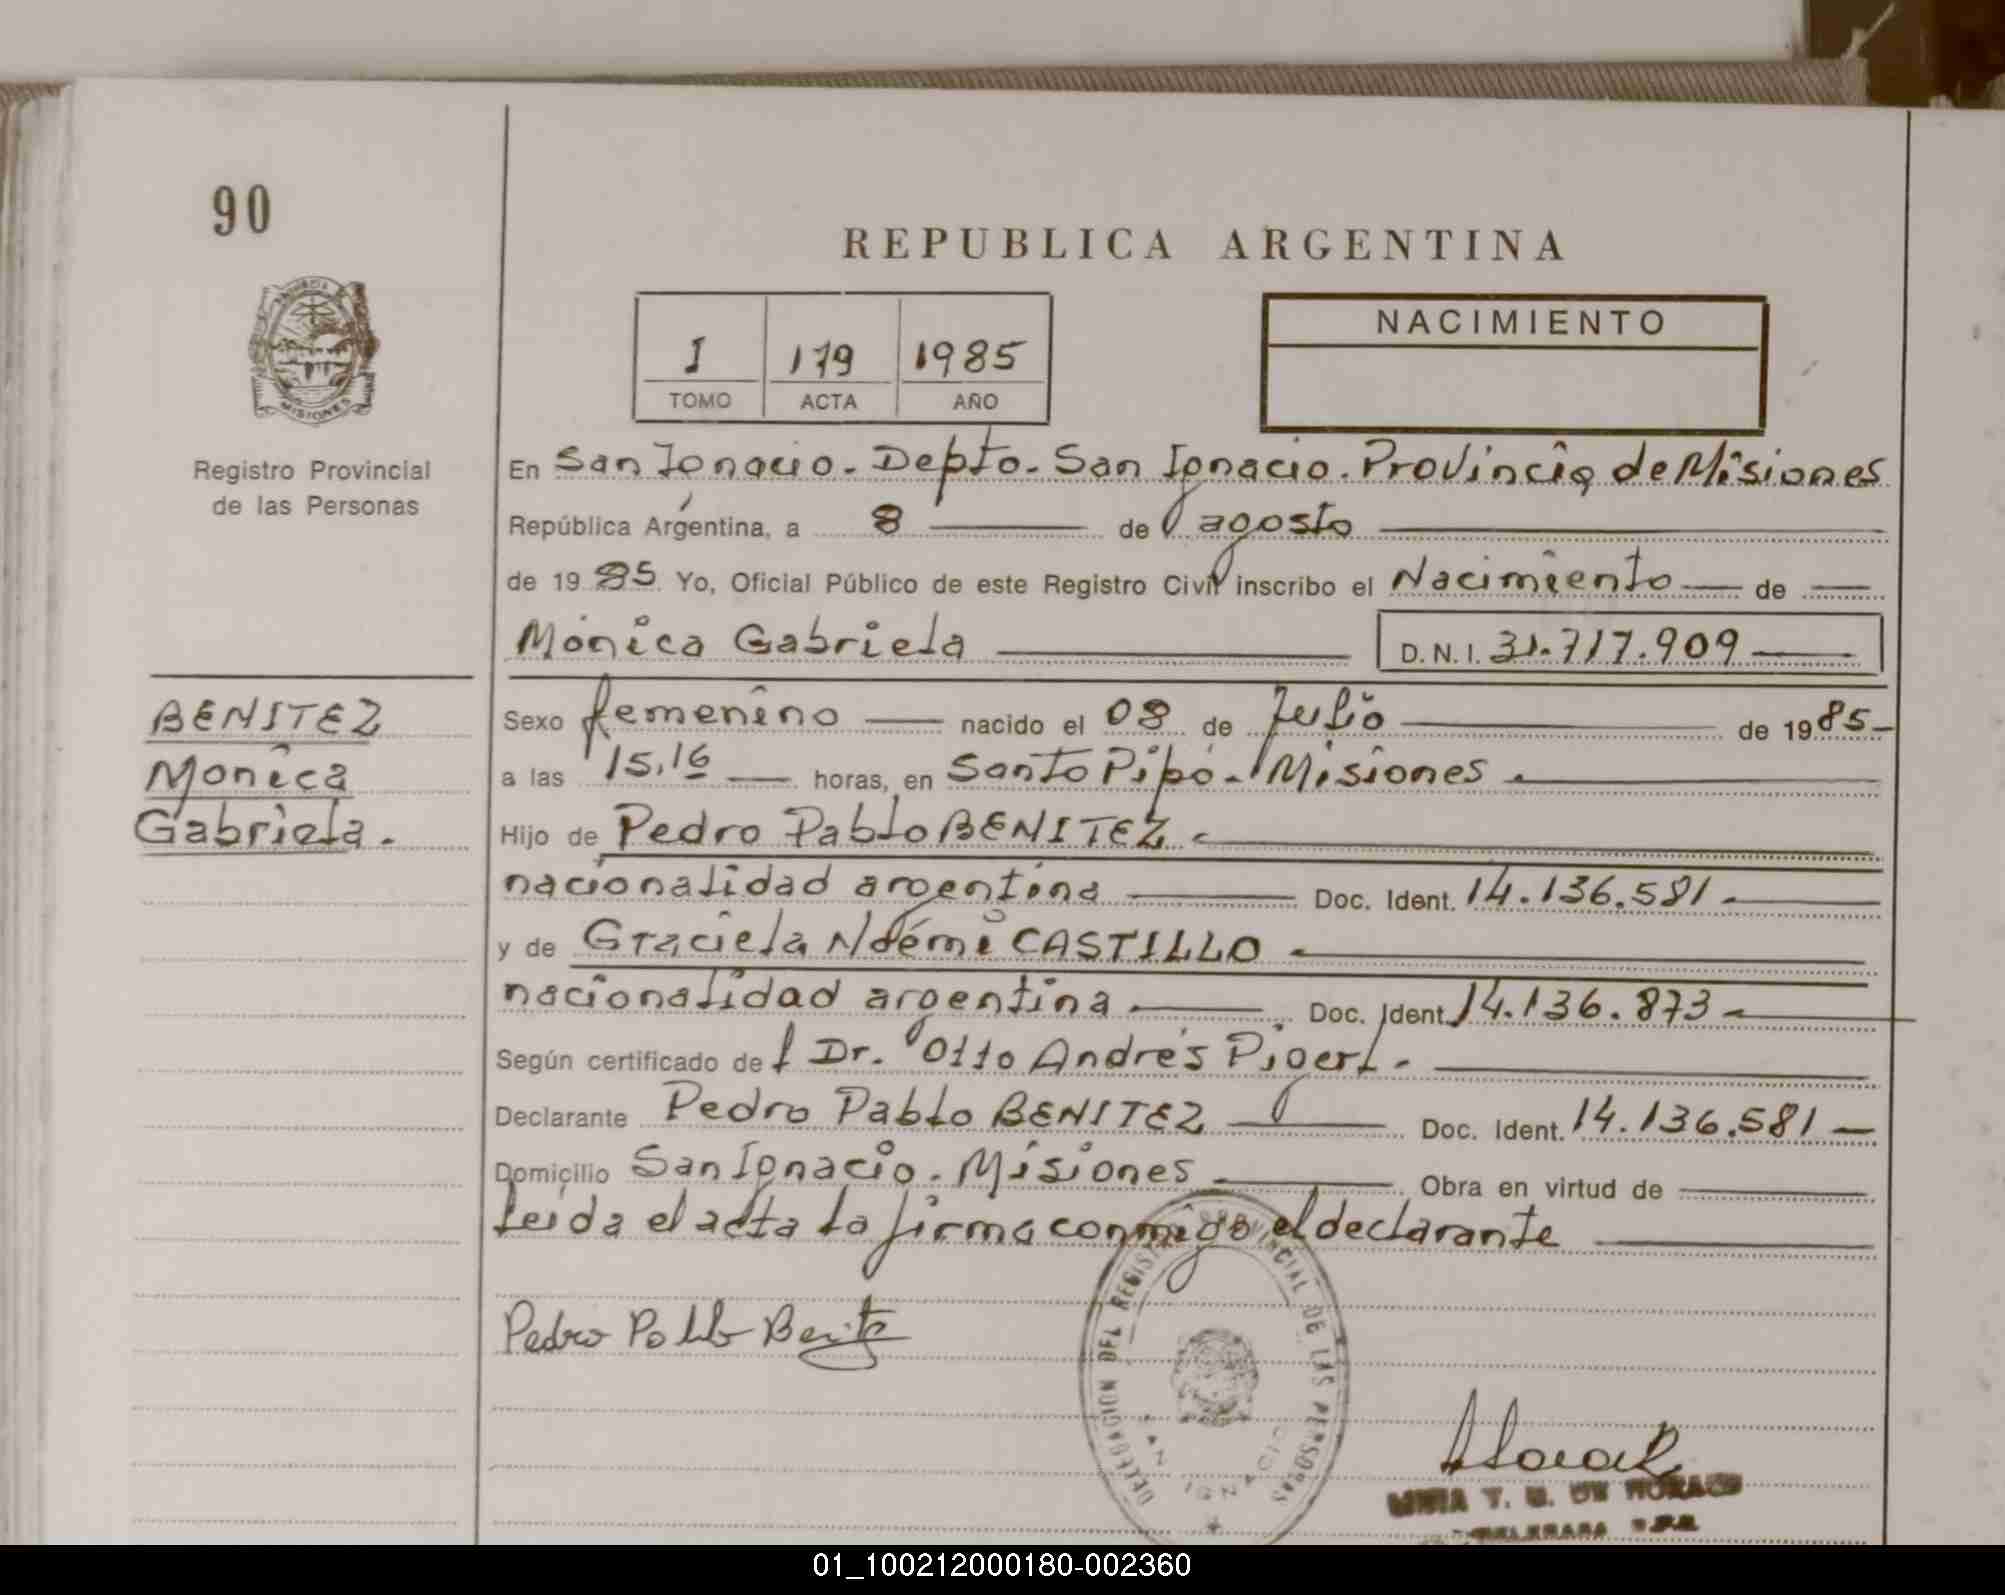 90
REPUBLICA ARGENTINA
PROVINCIA DE
MISIONES
Registro Provincial
de las Personas
I 179 1985
TOMO ACTA AÑO
NACIMIENTO
En San Ignacio. Depto. San Ignacio. Provincia de Misiones
República Argentina, a 8 de agosto
de 19 85 Yo, Oficial Público de este Registro Civil inscribo el Nacimiento de
Mónica Gabriela D.N.I. 31.717.909
BENITEZ
Monica
Gabriela.
Sexo femenino nacido el 08 de Julio de 19 85
a las 15,16 horas, en Santo Pipó. Misiones
Hijo de Pedro Pablo BENITEZ.
nacionalidad argentina Doc. Ident. 14.136.581
y de Graciela Noémi CASTILLO
nacionalidad argentina Doc. Ident. 14.136.873
Según certificado del Dr. Otto Andrés Pigerl.
Declarante Pedro Pablo BENITEZ Doc. Ident. 14.136.581
Domicilio San Ignacio. Misiones Obra en virtud de
Leida el acta la firma conmigo el declarante
Pedro Pablo Benitez
DELEGACION DEL REGISTRO PROVINCIAL DE LAS PERSONAS
SAN IGNACIO
T. DE
01_100212000180-002360